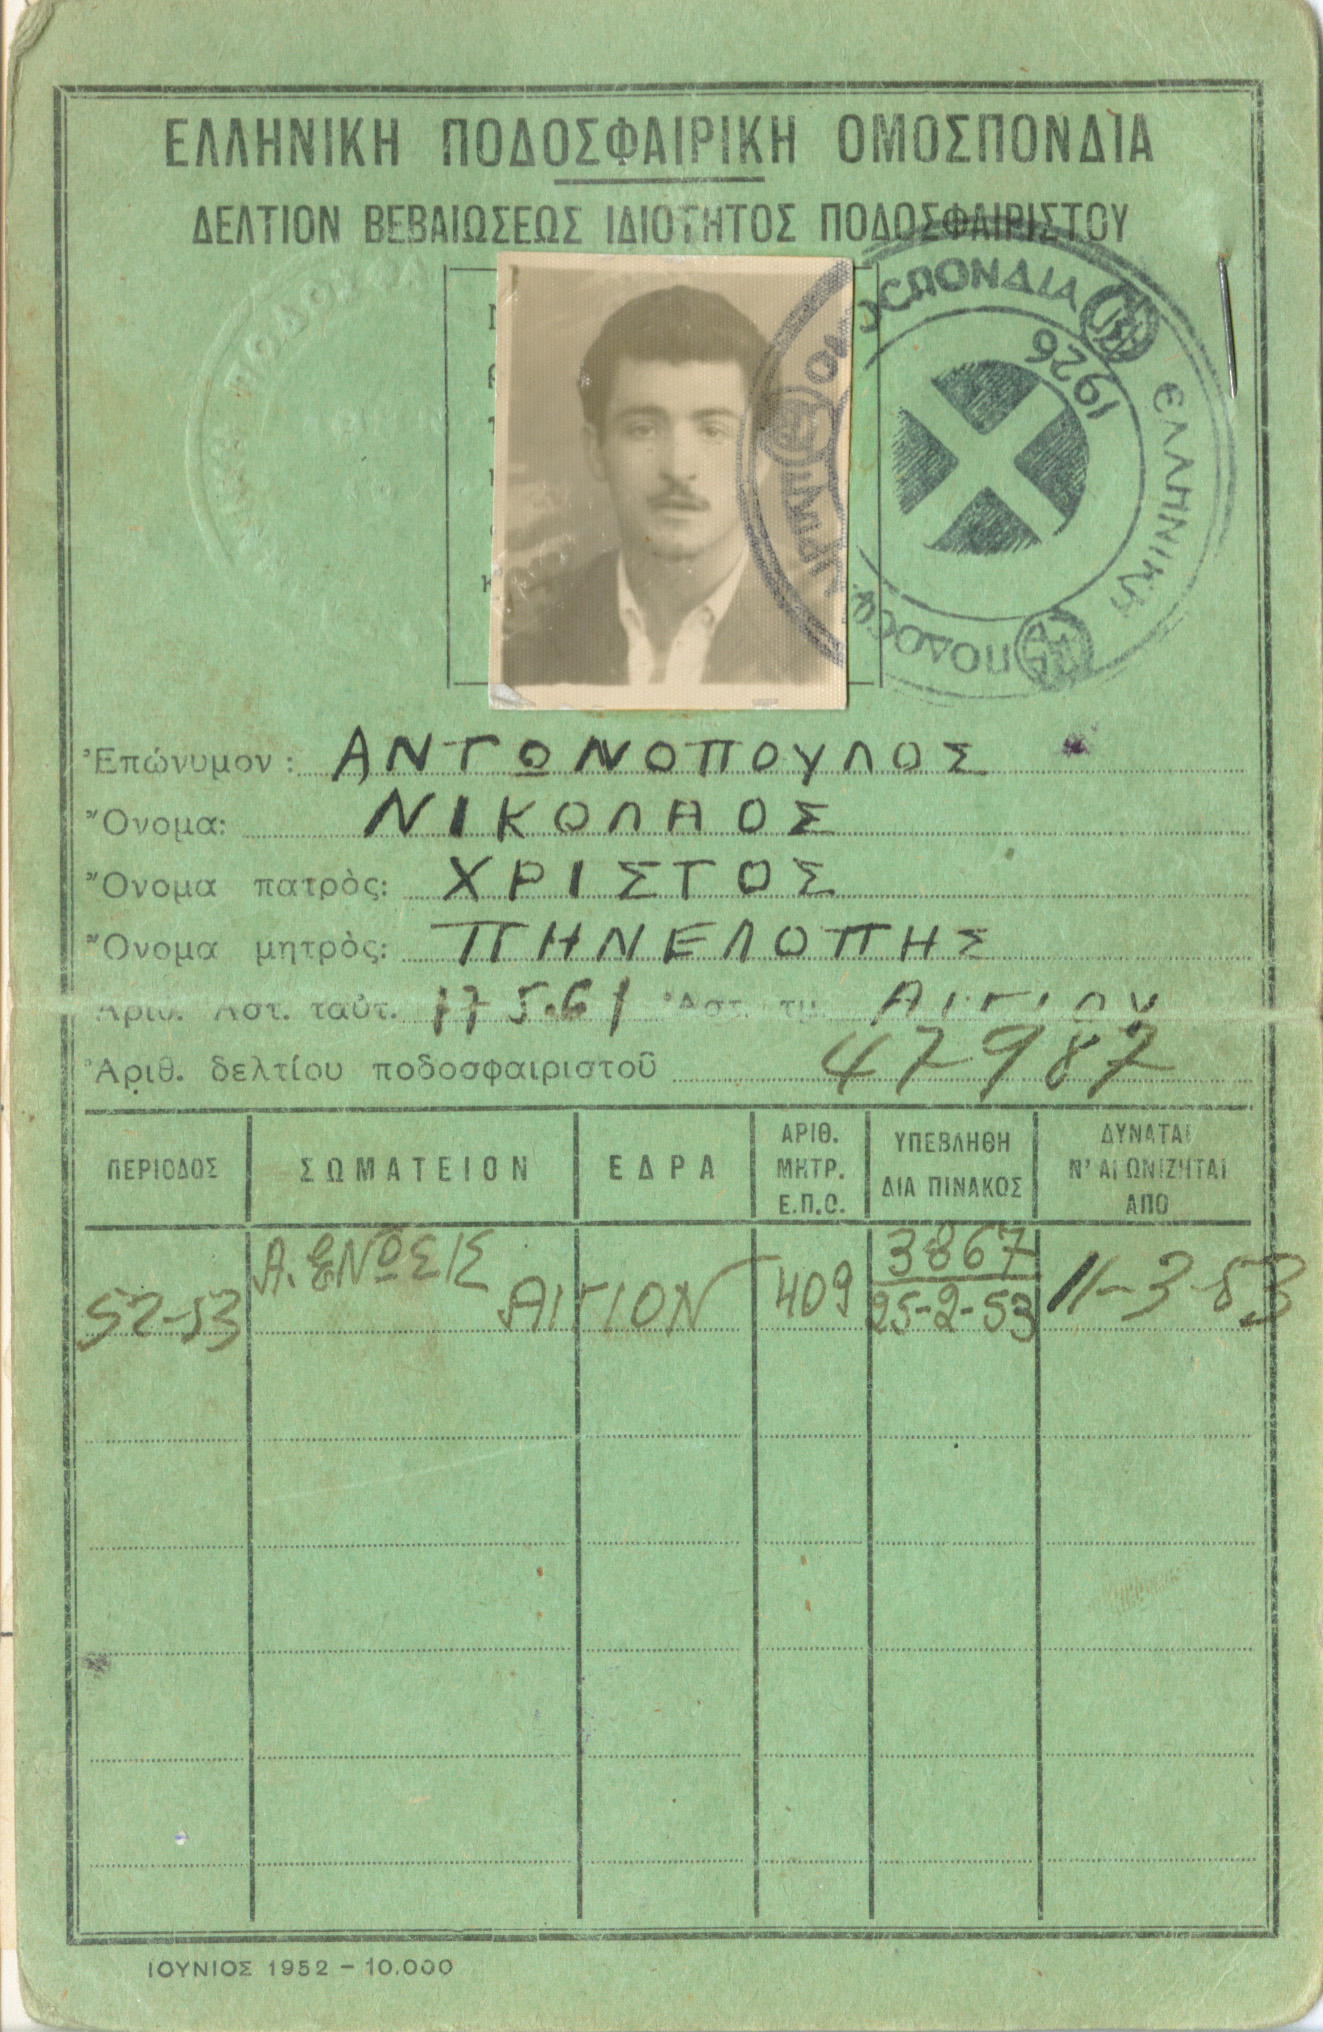 ΕΛΛΗΝΙΚΗ ΠΟΔΟΣΦΑΙΡΙΚΗ ΟΜΟΣΠΟΝΔΙΑ
ΔΕΛΤΙΟΝ ΒΕΒΑΙΩΣΕΩΣ ΙΔΙΟΤΗΤΟΣ ΠΟΔΟΣΦΑΙΡΙΣΤΟΥ
ΕΛΛΗΝΙΚΗ ΠΟΔΟΣΦ ΙΡΙΚΗ ΟΜΟΣΠΟΝΔΙΑ
1926
Ἐπώνυμον: ΑΝΤΩΝΟΠΟΥΛΟΣ
Ὄνομα: ΝΙΚΟΛΑΟΣ
Ὄνομα πατρὸς: ΧΡΙΣΤΟΣ
Ὄνομα μητρὸς: ΠΗΝΕΛΟΠΗΣ
Ἀριθ. Ἀστ. ταὐτ. Ἀστ. τμ. ΑΙΓΙΟΥ
Ἀριθ. δελτίου ποδοσφαιριστοῦ 47987
ΠΕΡΙΟΔΟΣ ΣΩΜΑΤΕΙΟΝ ΕΔΡΑ ΑΡΙΘ. ΜΗΤΡ. Ε.Π.Ο. ΥΠΕΒΛΗΘΗ ΔΙΑ ΠΙΝΑΚΟΣ ΔΥΝΑΤΑΙ Ν' ΑΓΩΝΙΖΗΤΑΙ ΑΠΟ
52-53 Α. ΕΝΩΣΙΣ ΑΙΓΙΟΝ 409 3867 25-2-53 11-3-53
ΙΟΥΝΙΟΣ 1952 – 10.000